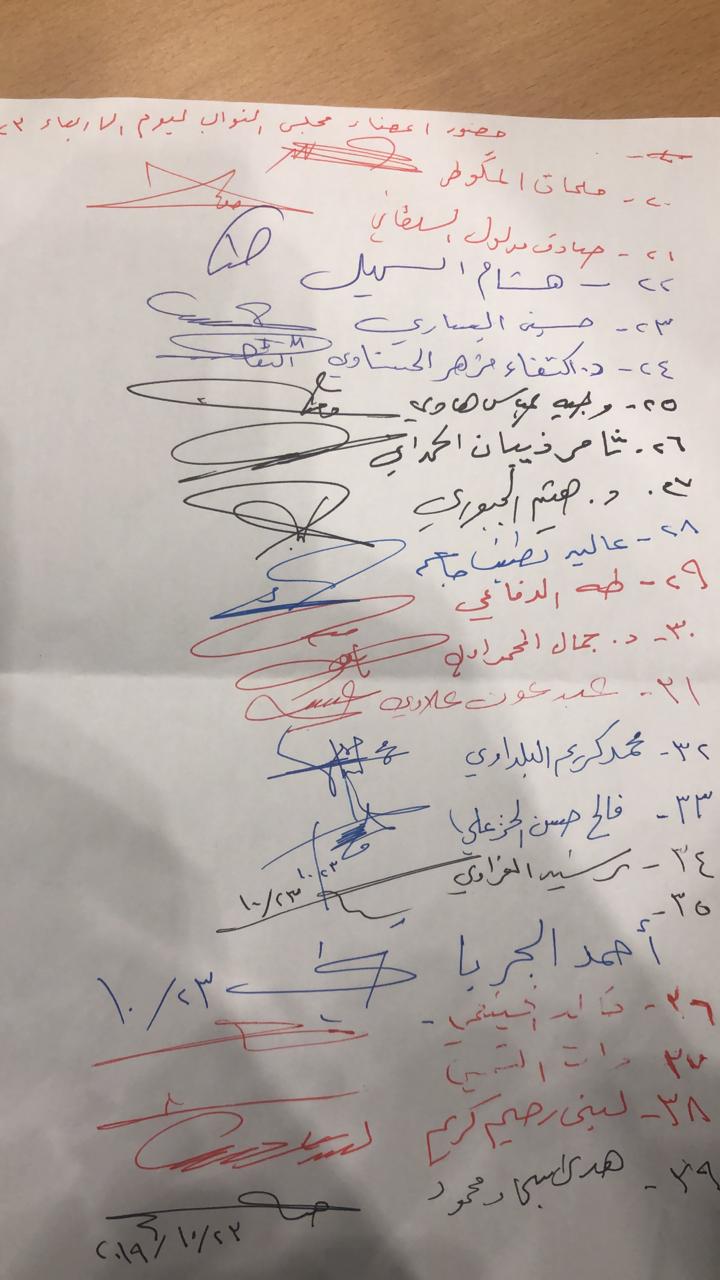 حضور اعضاء مجلس النواب ليوم الاربعاء ٢٣
٢٠- المكوطر
٢١- صادق مدلول السلطاني
٢٢- هشام السهيل
٢٣- حسين اليساري
٢٤- د. اكتفاء مزهر الحسناوي
٢٥- وجيه عباس هادي
٢٦- ثامر ذيبان الحمداني
٢٧- د. هيثم الجبوري
٢٨- عالية نصيف جاسم
٢٩- طه الدفاعي
٣٠- د. جمال المحمداوي
٣١- عبد عون علاوي
٣٢- محمد كريم البلداوي
٣٣- فالح حسن الخزعلي
١٠/٢٣
٣٤- برشيد العزاوي
١٠/٢٣
٣٥-
أحمد الجربا
١٠/٢٣
٣٦-
٣٧-
٣٨- لبنى رحيم كريم
٣٩- هدى سجاد محمود
٢٠١٩/١٠/٢٣